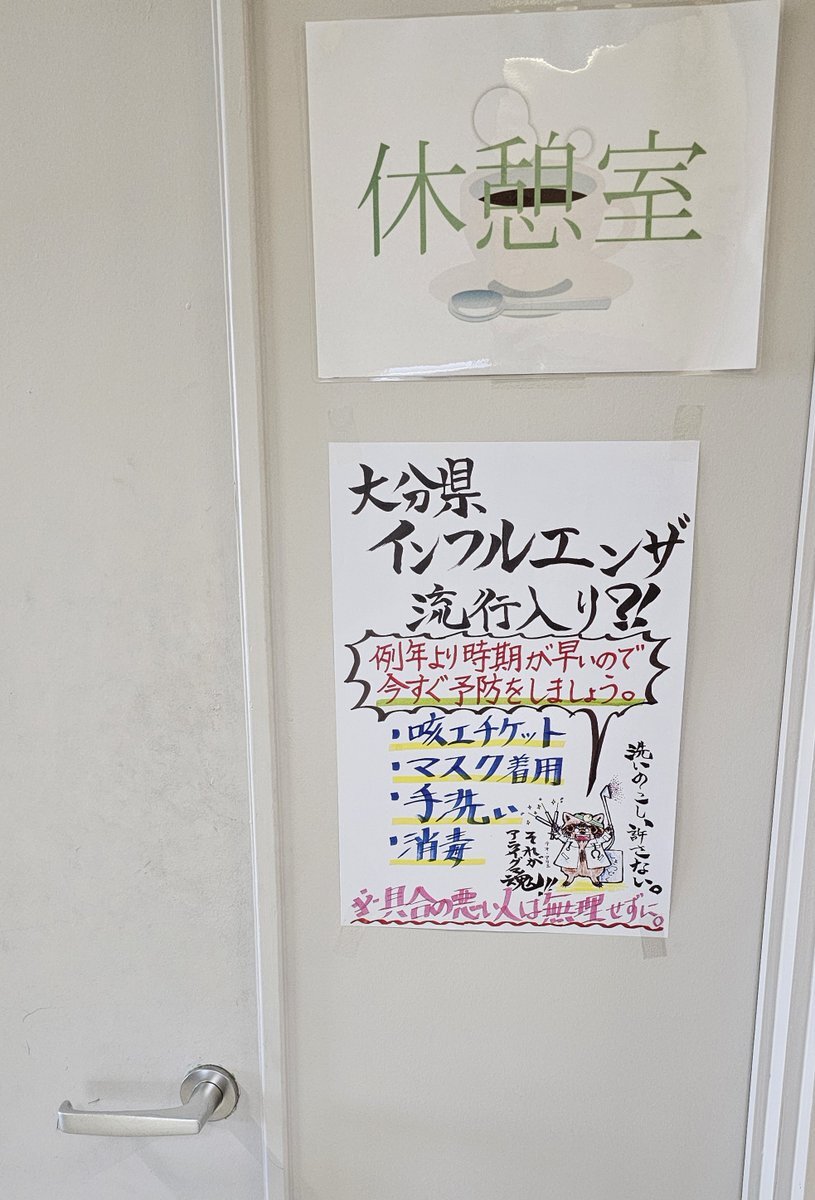 休憩室
大分県
インフルエンザ
流行入り?!
例年より時期が早いので
今すぐ予防をしましょう。
・咳エチケット
・マスク着用
・手洗い
・消毒
洗いのこし、許さない。
それが
アライグマ
魂!!
※具合の悪い人は無理せずに。